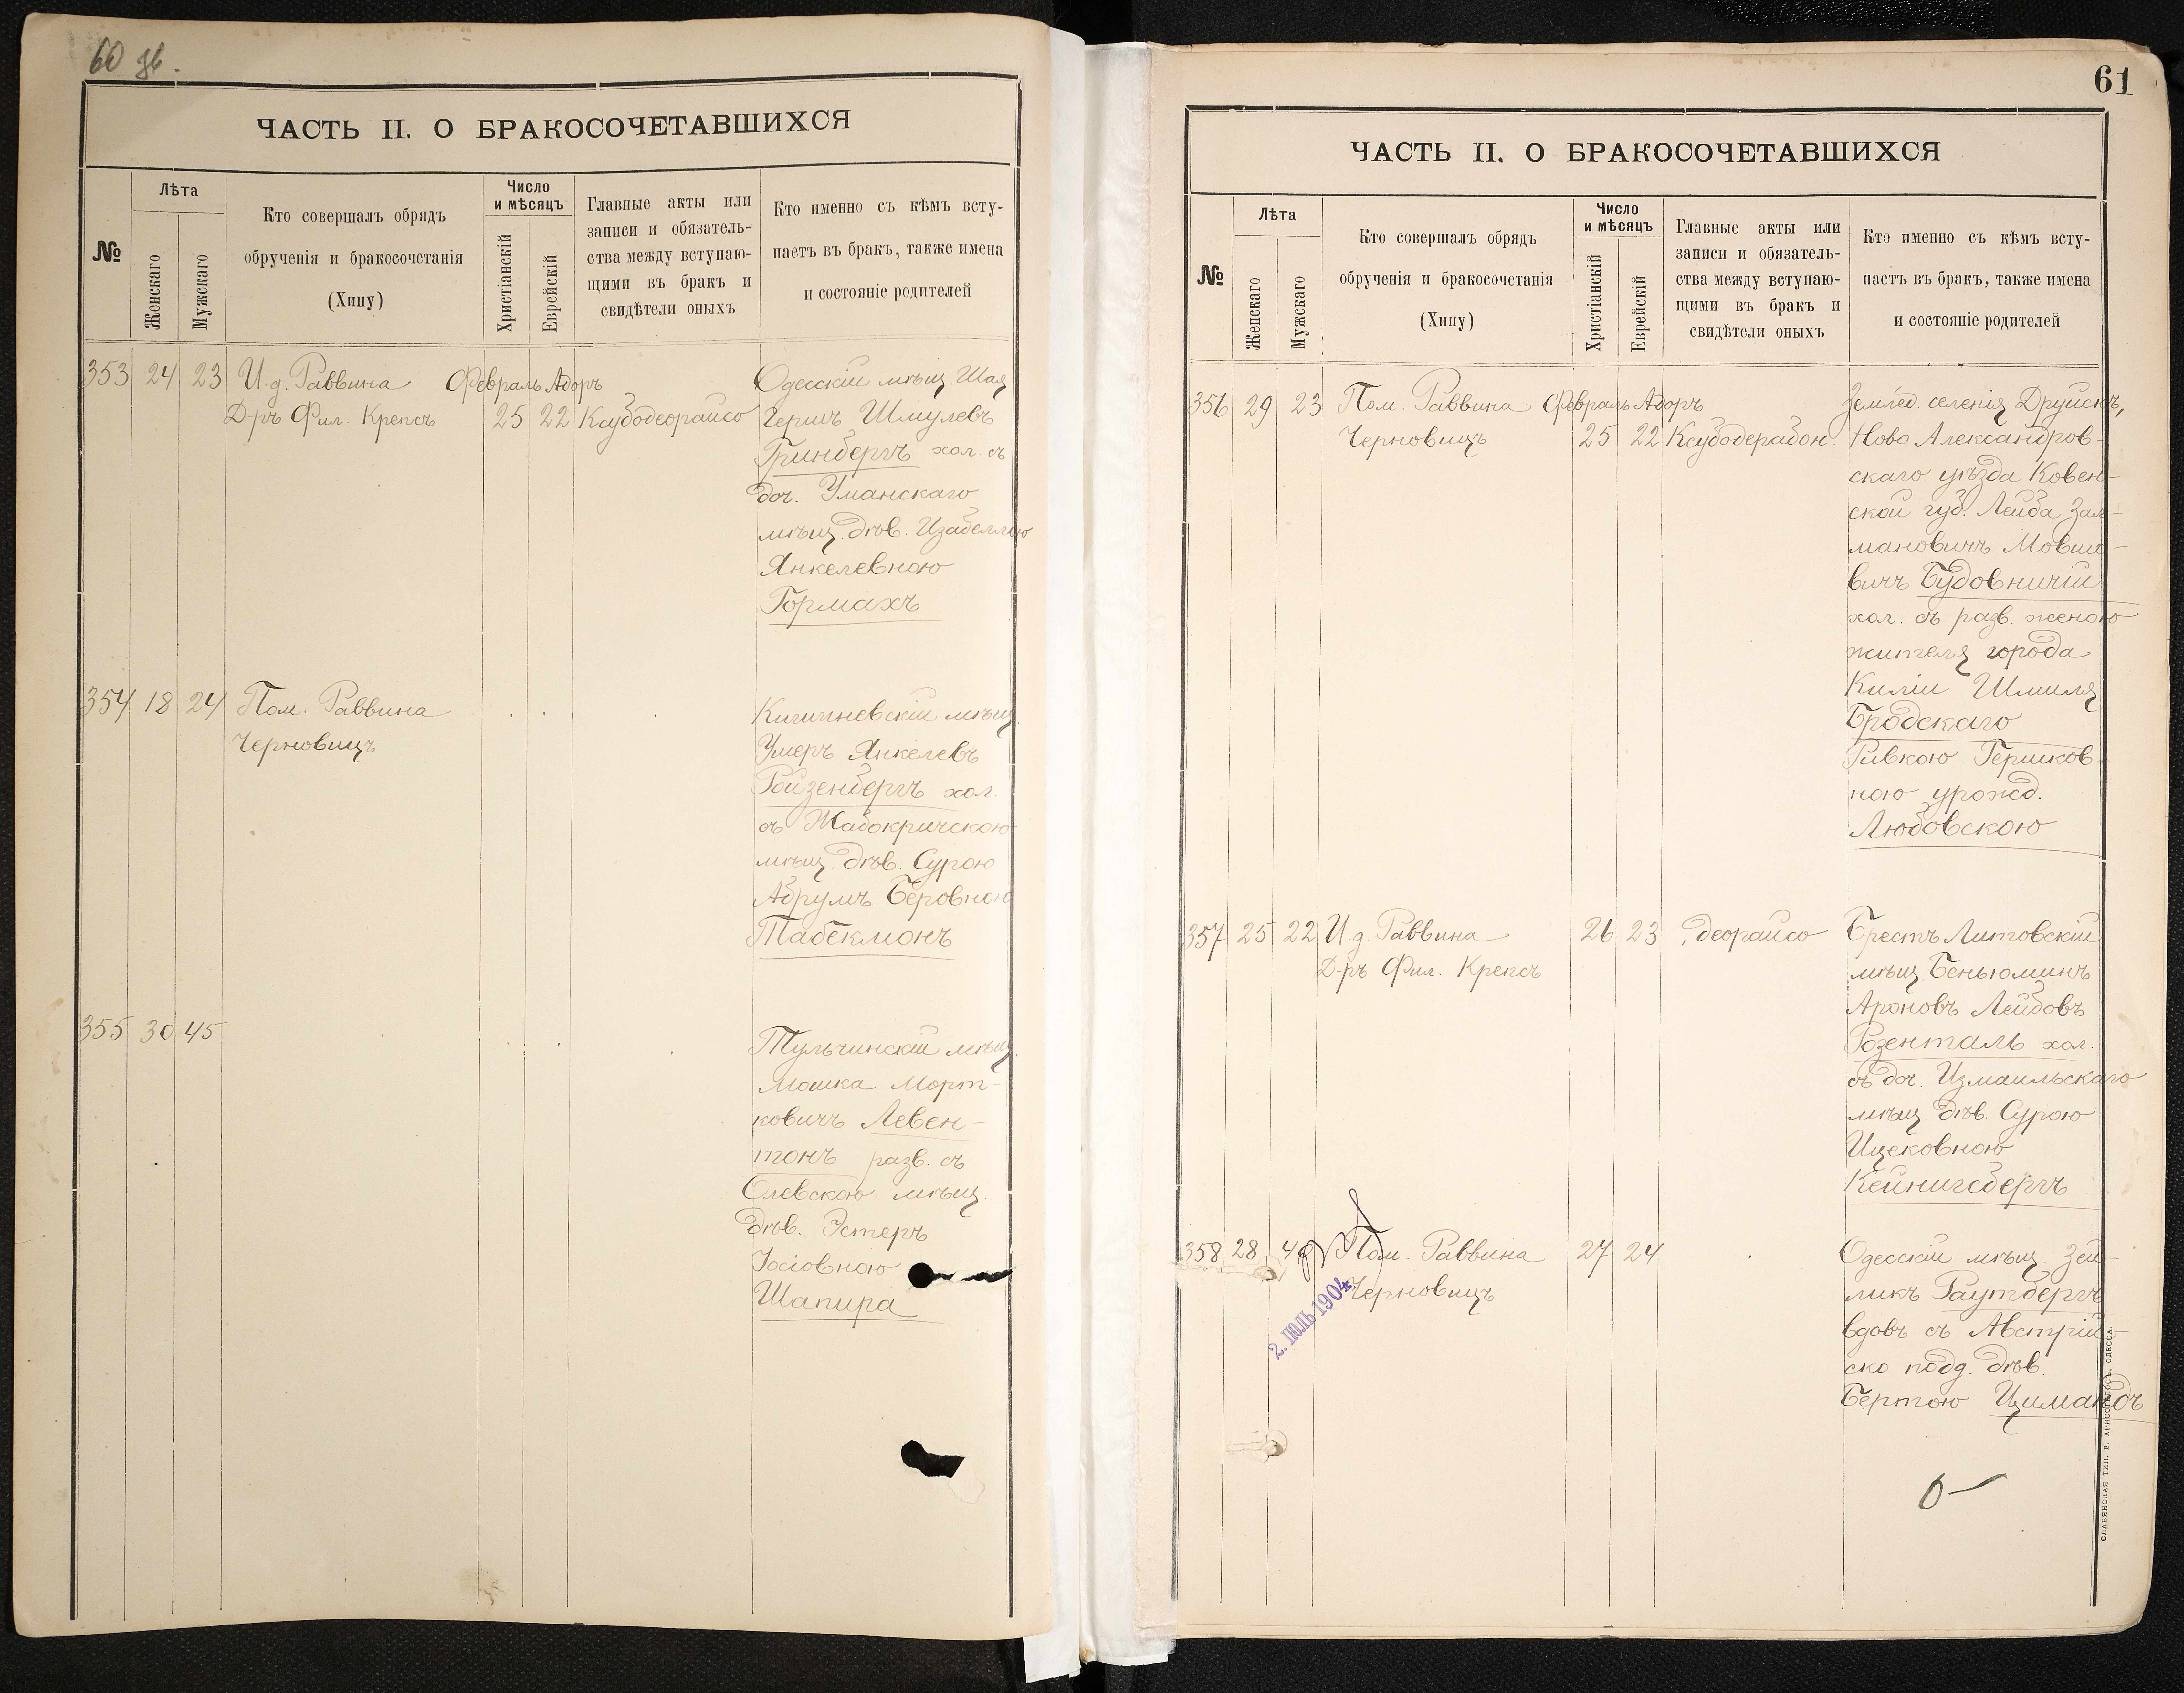 60 зв.
ЧАСТЬ II. О БРАКОСОЧЕТАВШИХСЯ
№
Лѣта
Женскаго
Мужскаго
Кто совершалъ обрядъ
обрученія и бракосочетанія
(Хипу)
Число
и мѣсяцъ
Христіанскій
Еврейскій
Главные акты или
записи и обязатель-
ства между вступаю-
щими въ бракъ и
свидѣтели оныхъ
Кто именно съ кѣмъ всту-
паетъ въ бракъ, также имена
и состояніе родителей
353 24 23 И.д. Раввина Февраль Адоръ Одесскій мѣщ. Шая
Д-ръ Фил. Крепсъ 25 22 Ксубодеорайсо Гершъ Шмулевъ
Гринбергъ хол. съ
доч. Уманскаго
мѣщ. дѣв. Изабеллою
Янкелевною
Гормахъ
354 18 24 Пом. Раввина Кишиневскій мѣщ.
Черновицъ Умеръ Янкелевъ
Ройзенбергъ хол.
съ Жабокричскою
мѣщ. дѣв. Сурою
Абрумъ Беровною
Табекмонъ
355 30 45 Тульчинскій мѣщ.
Мошка Морт-
ковичъ Левен-
тонъ разв. съ
Олевскою мѣщ.
дѣв. Эстеръ
Іосіовною
Шапира
61
ЧАСТЬ II. О БРАКОСОЧЕТАВШИХСЯ
№
Лѣта
Женскаго
Мужскаго
Кто совершалъ обрядъ
обрученія и бракосочетанія
(Хипу)
Число
и мѣсяцъ
Христіанскій
Еврейскій
Главные акты или
записи и обязатель-
ства между вступаю-
щими въ бракъ и
свидѣтели оныхъ
Кто именно съ кѣмъ всту-
паетъ въ бракъ, также имена
и состояніе родителей
356 29 23 Пом. Раввина Февраль Адоръ Землед. селенія Друйскъ,
Черновицъ 25 22 Ксубодерабон. Ново Александров-
скаго уѣзда Ковен-
ской губ. Лейба Зал-
мановичъ Мовшо-
вичъ Будовничій
хол. съ разв. женою
жителя города
Киліи Шмиля
Бродскаго
Ривкою Гершков-
ною урожд.
Любовскою
357 25 22 И.д. Раввина 26 23 „деорайсо Брестъ Литовскій
Д-ръ Фил. Крепсъ мѣщ. Беньюминъ
Ароновъ Лейбовъ
Розенталь хол.
съ доч. Измаильскаго
мѣщ. дѣв. Сурою
Ицековною
Кейнигсбергъ
358 28 Пом. Раввина 27 24 Одесскій мѣщ. Зей-
Черновицъ ликъ Раутбергъ
вдовъ съ Австрій-
ско подд. дѣв.
Бертою Цимандъ
2. ІЮЛЬ 1904
СЛАВЯНСКАЯ ТИП. Е. ХРИСОГЕЛОСЪ, ОДЕССА.